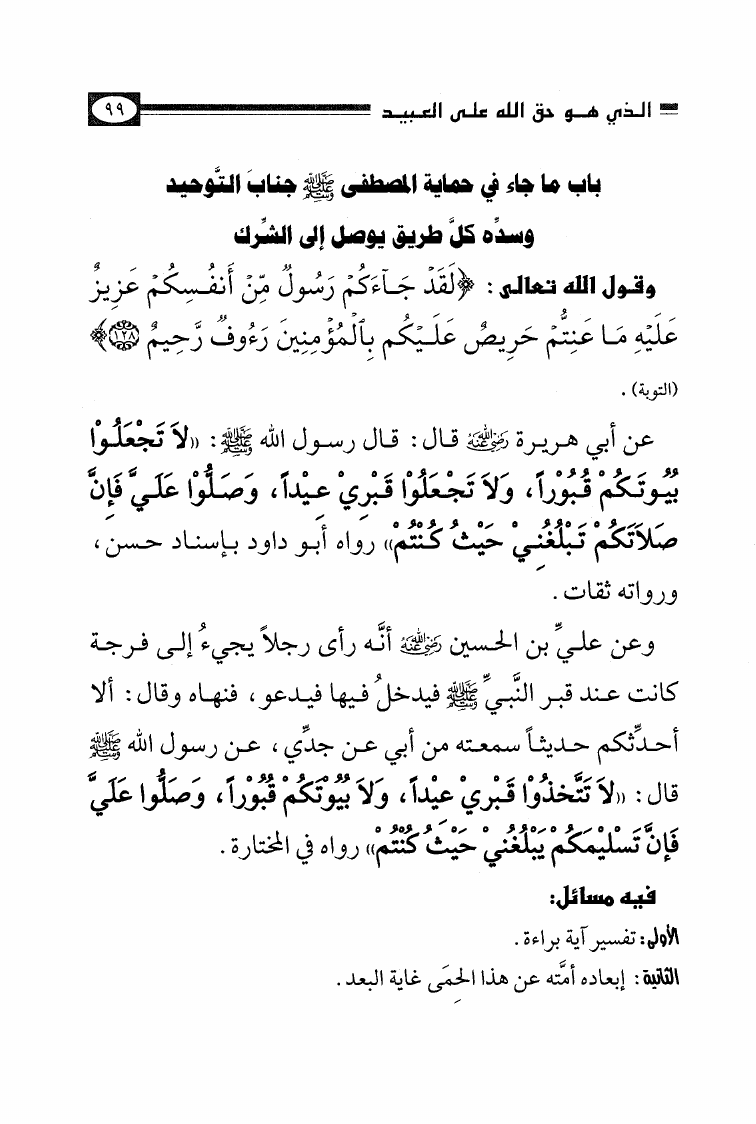 الذي هو حق الله على العبيد ٩٩
باب ما جاء في حماية المصطفى ﷺ جنابَ التَّوحيد
وسدِّه كلَّ طريق يوصل إلى الشِّرك
وقول الله تعالى: ﴿لَقَدْ جَآءَكُمْ رَسُولٌ مِّنْ أَنفُسِكُمْ عَزِيزٌ
عَلَيْهِ مَا عَنِتُّمْ حَرِيصٌ عَلَيْكُم بِالْمُؤْمِنِينَ رَءُوفٌ رَّحِيمٌ ۝١٢٨﴾
(التوبة).
عن أبي هريرة رَضِيَ اللهُ عَنْهُ قال: قال رسول الله ﷺ: «لاَ تَجْعَلُوْا
بُيُوتَكُمْ قُبُوْراً، وَلاَ تَجْعَلُوْا قَبْرِيْ عِيْداً، وَصَلُّوْا عَلَيَّ فَإِنَّ
صَلاَتَكُمْ تَبْلُغُنِيْ حَيْثُ كُنْتُمْ» رواه أبو داود بإسناد حسن،
ورواته ثقات.
وعن عليِّ بن الحسين رَضِيَ اللهُ عَنْهُ أنَّه رأى رجلاً يجيءُ إلى فرجة
كانت عند قبر النَّبيِّ ﷺ فيدخلُ فيها فيدعو، فنهاه وقال: ألا
أحدِّثكم حديثاً سمعته من أبي عن جدِّي، عن رسول الله ﷺ
قال: «لاَ تَتَّخِذُوْا قَبْرِيْ عِيْداً، وَلاَ بُيُوْتَكُمْ قُبُوْراً، وَصَلُّوا عَلَيَّ
فَإِنَّ تَسْلِيْمَكُمْ يَبْلُغُنِيْ حَيْثُ كُنْتُمْ» رواه في المختارة.
فيه مسائل:
الأولى: تفسير آية براءة.
الثانية: إبعاده أمَّته عن هذا الحِمَى غاية البعد.